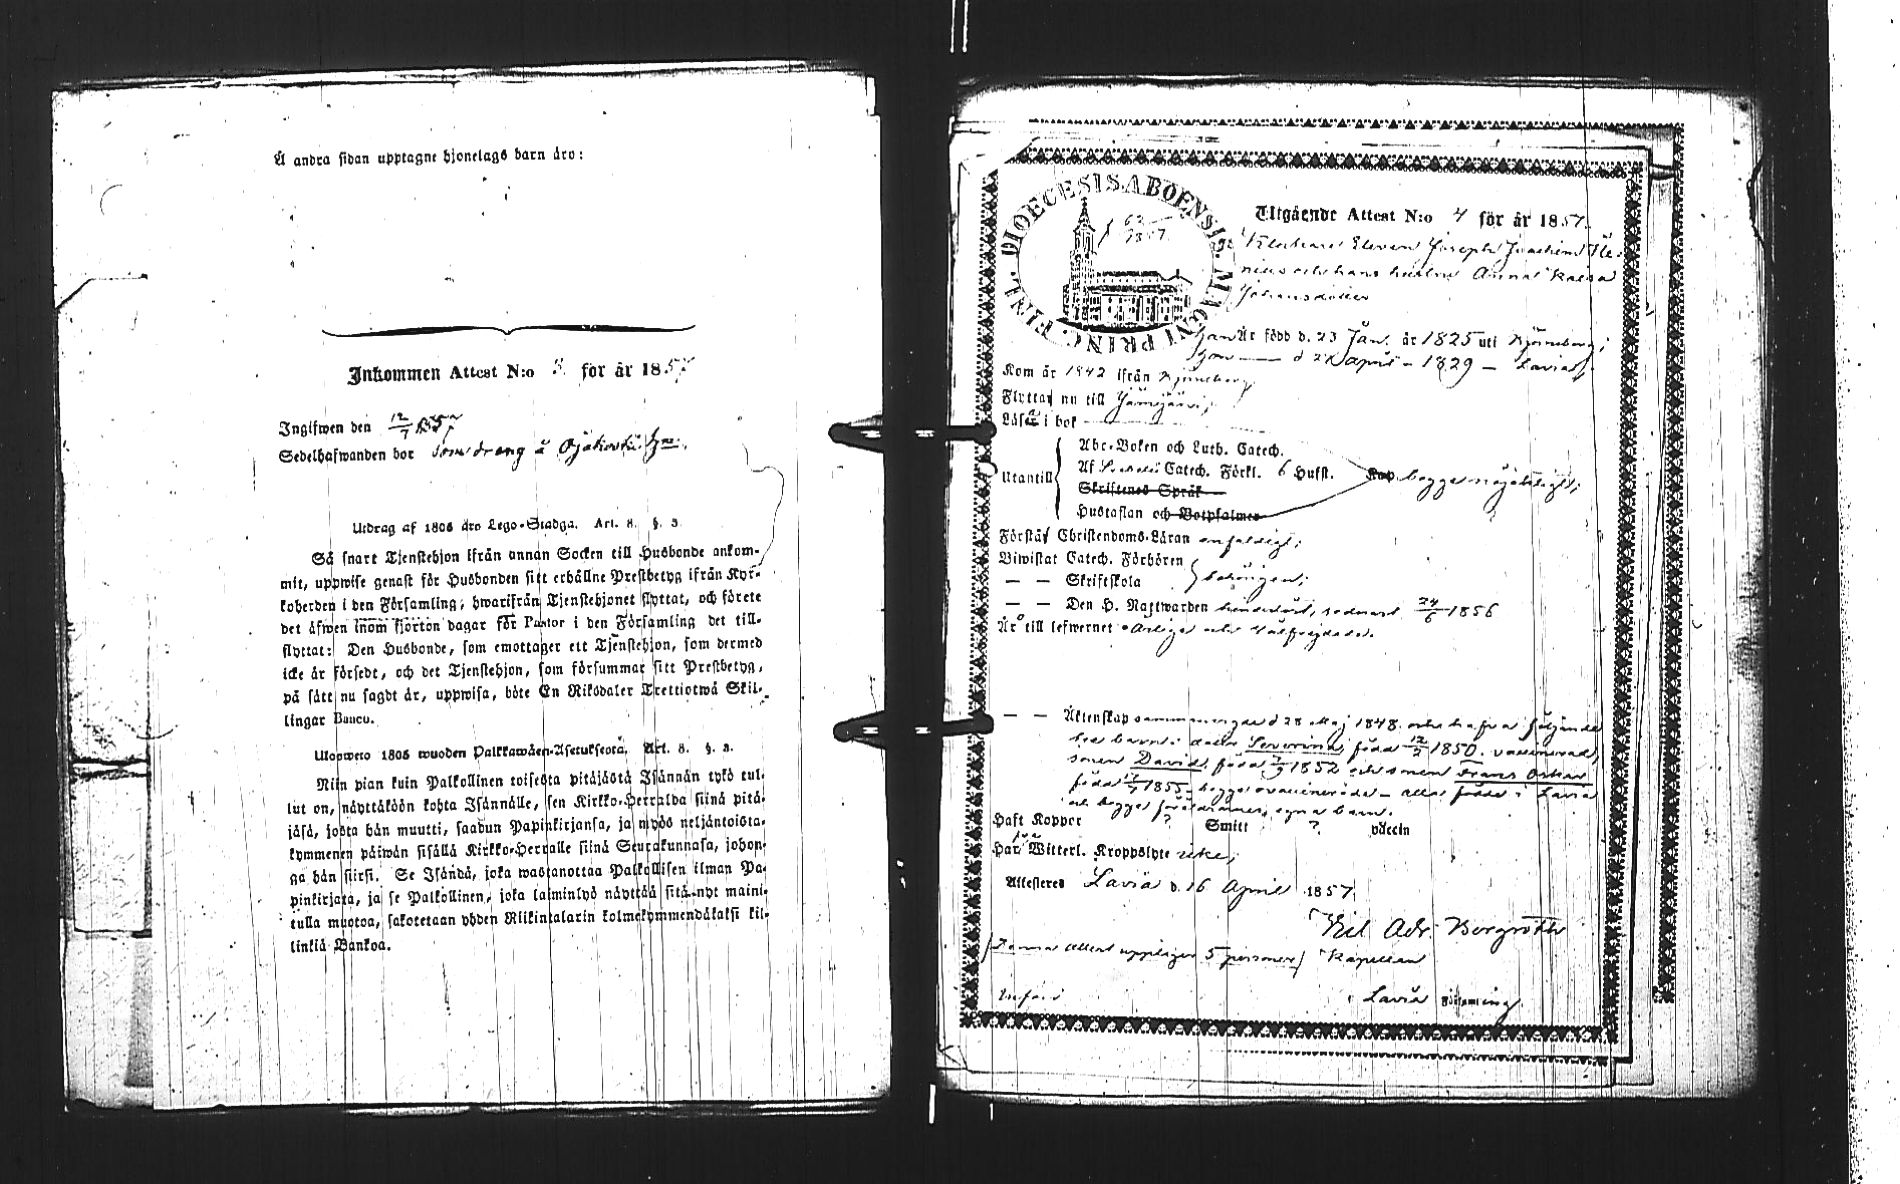 Å andra sidan upptagne hjonelags barn äro:
Inkommen Attest N:o 3. för år 1857
Ingifwen den 12/7 1857
Sedelhafwanden bor som dräng å
Utdrag af 1805 års Lego-Stadga. Art. 8. §. 3.
Så snart Tjenstehjon ifrån annan Socken till Husbonde ankom-
mit, uppwise genast för Husbonden sitt erhållne Prestbetyg ifrån Kyr-
koherden i den Församling, hwarifrån Tjenstehjonet flyttat, och förete
det äfwen inom fjorton dagar för Pastor i den Församling det till-
flyttat: Den Husbonde, som emottager ett Tjenstehjon, som dermed
icke är försedt, och det Tjenstehjon, som försummar sitt Prestbetyg,
på sätt nu sagdt är, uppwisa, böte En Riksdaler Trettiotwå Skil-
lingar Banco.
Ulosweto 1805 wuoden Palkkawäen-Asetuksesta. Art. 8. §. 3.
Niin pian kuin Palkollinen toisesta pitäjästä Isännän tykö tul-
lut on, näyttäköön kohta Isännälle, sen Kirkko-Herralda siinä pitä-
jäsä, josta hän muutti, saadun Papinkirjansa, ja myös neljäntoista-
kymmenen päiwän sisällä Kirkko-Herralle siinä Seurakunnasa, johon-
ga hän siirsi. Se Isändä, joka wastanottaa Palkollisen ilman Pa-
pinkirjata, ja se Palkollinen, joka laiminlyö näyttää sitä nyt maini-
tulla muotoa, sakotetaan yhden Riikintalarin kolmekymmendäkaksi kil-
linkiä Bankoa.
DIOECESIS ABOENSIS. MAGNI PRINC. FINL.
63/1857.
Utgående Attest N:o 4 för år 1857.
Klockare Eleven Joseph Joachim He-
nius och hans hustru Anna Kaisa
Johansdotter
han Är född d. 23 Jan. år 1825 uti Björneborg;
hon — d 24 April - 1829 — Lavia.
Kom år 1842 ifrån Björneborg.
Flyttar nu till Jämijärvi;
Läsa i bok
Utantill
Abc-Boken och Luth. Catech.
Af Catech. Förkl. 6 Hufst. begge nöjaktigt;
Skriftenes Språk
Hustaflan och Botpsalmer
Förstå Christendoms-Läran enfaldigt;
Biwistat Catech. Förhören
— — Skriftskola behörigen;
— — Den H. Nattwarden senast 24/6 1856
Är till lefwernet ärliga och välfrejdade.
— — Äktenskap sammanvigde d 28 Maj 1848. och hafva följande
barn: dottr Severina, född 12/2 1850. vaccinerad,
sonen David, född 7/9 1852 och sonen Frans Oskar
född 1855, begge ovaccinerade – alla födde i Lavia
och begge föräldrarnes egna barn.
Haft Koppor ? Smitt ? vaccin
Har Witterl. Kroppslyte icke;
Attesteres Lavia d. 16 April 1857,
Kil Adr. Bergroth
(Denna attest upptager 5 personer) Kapellan
Införd
i Lavia Församling.